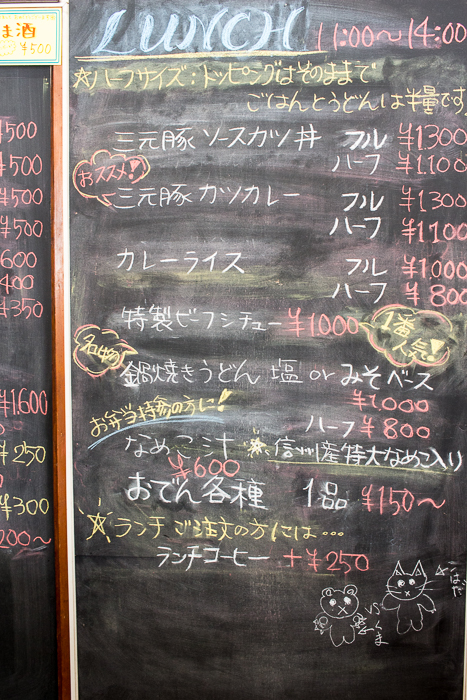 ま酒
¥500
¥500
¥500
¥500
¥500
600
400
¥350
¥1.600
¥250
¥300
200～
LUNCH 11:00～14:00
☆ハーフサイズ:トッピングはそのままで
ごはんとうどんは半量です
三元豚 ソースカツ丼 フル ¥1300
ハーフ ¥1.100
おススメ!
三元豚 カツカレー フル ¥1300
ハーフ ¥1100
カレーライス フル ¥1.000
ハーフ ¥800
特製ビーフシチュー ¥1000～ 1番人気!
鍋焼きうどん 塩 or みそベース
¥1000
ハーフ ¥800
お弁当持参の方に!
なめこ汁 ☆信州産特大なめこ入り
¥600
おでん各種 1品 ¥150～
☆ランチご注文の方には…
ランチコーヒー +¥250
vs
くま